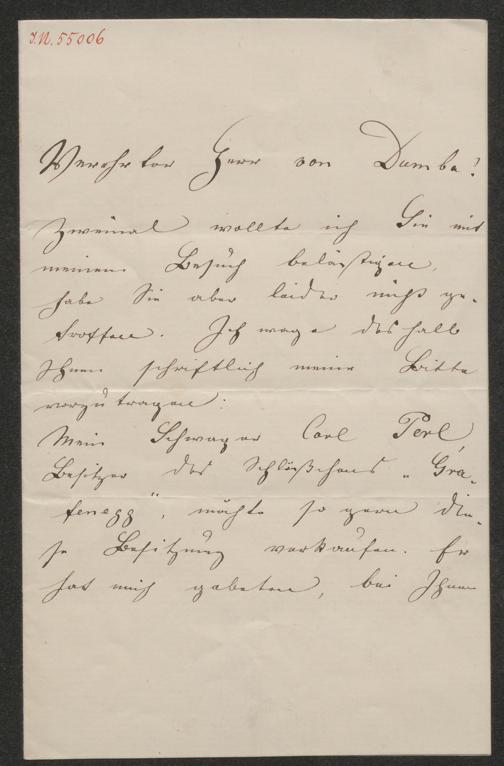 I.N. 55006
Verehrter Herr von Dumba!
Zweimal wollte ich Sie mit
meinem Besuch belästigen,
habe Sie aber leider nicht ge-
troffen. Ich wage deshalb
Ihnen schriftlich meine Bitte
vorzutragen:
Mein Schwager Carl Perl,
Besitzer des Schlößchens „Gra-
fenegg", möchte so gern die-
se Besitzung verkaufen. Er
hat mich gebeten, bei Ihnen